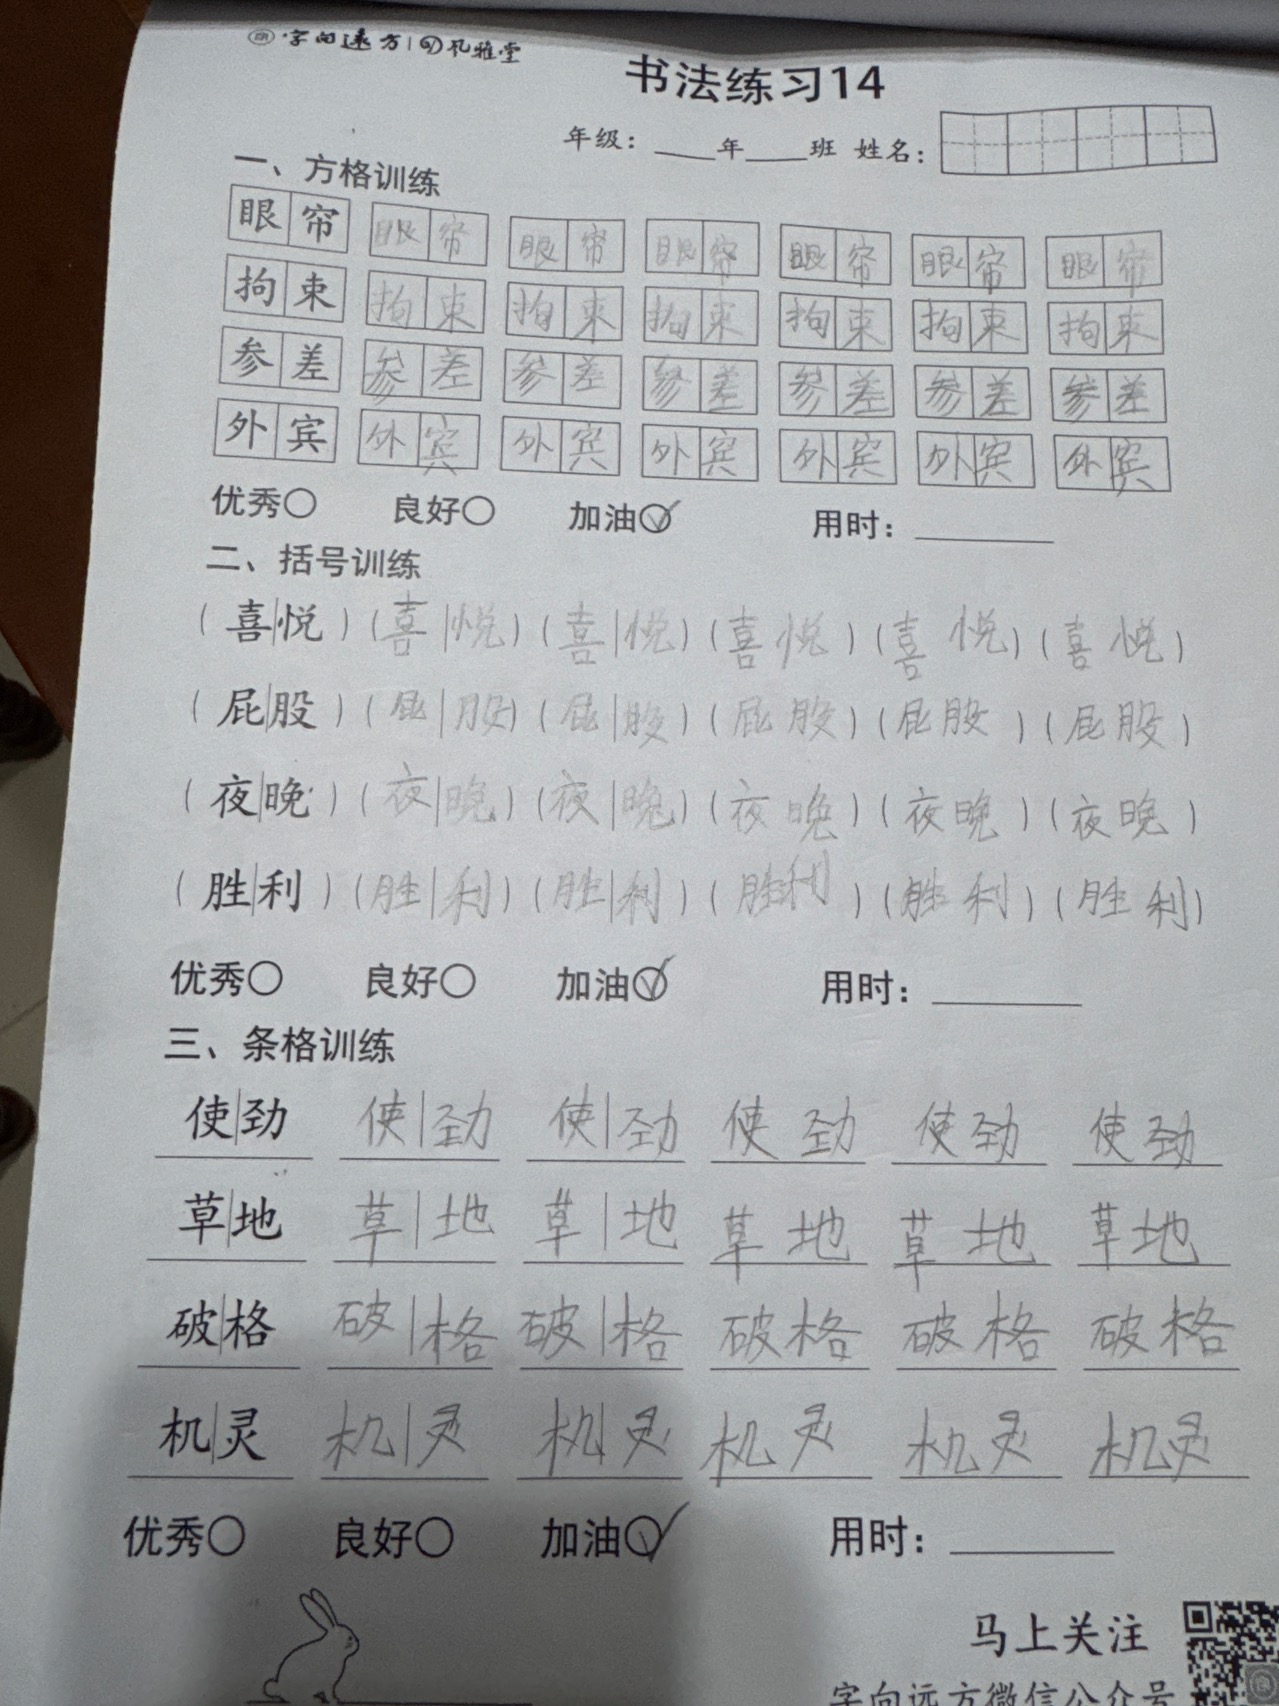 字向远方 | 孔雅堂
书法练习14
年级：____年____班 姓名：
一、方格训练
眼帘 眼帘 眼帘 眼帘 眼帘 眼帘 眼帘
拘束 拘束 拘束 拘束 拘束 拘束 拘束
参差 参差 参差 参差 参差 参差 参差
外宾 外宾 外宾 外宾 外宾 外宾 外宾
优秀○ 良好○ 加油○✓ 用时：______
二、括号训练
（喜|悦）（喜|悦）（喜|悦）（喜悦）（喜悦）（喜悦）
（屁|股）（屁|股）（屁|股）（屁股）（屁股）（屁股）
（夜|晚）（夜|晚）（夜|晚）（夜晚）（夜晚）（夜晚）
（胜|利）（胜|利）（胜|利）（胜利）（胜利）（胜利）
优秀○ 良好○ 加油○✓ 用时：______
三、条格训练
使|劲 使|劲 使|劲 使劲 使劲 使劲
草|地 草|地 草|地 草地 草地 草地
破|格 破|格 破|格 破格 破格 破格
机|灵 机|灵 机|灵 机灵 机灵 机灵
优秀○ 良好○ 加油○✓ 用时：______
马上关注
字向远方微信公众号